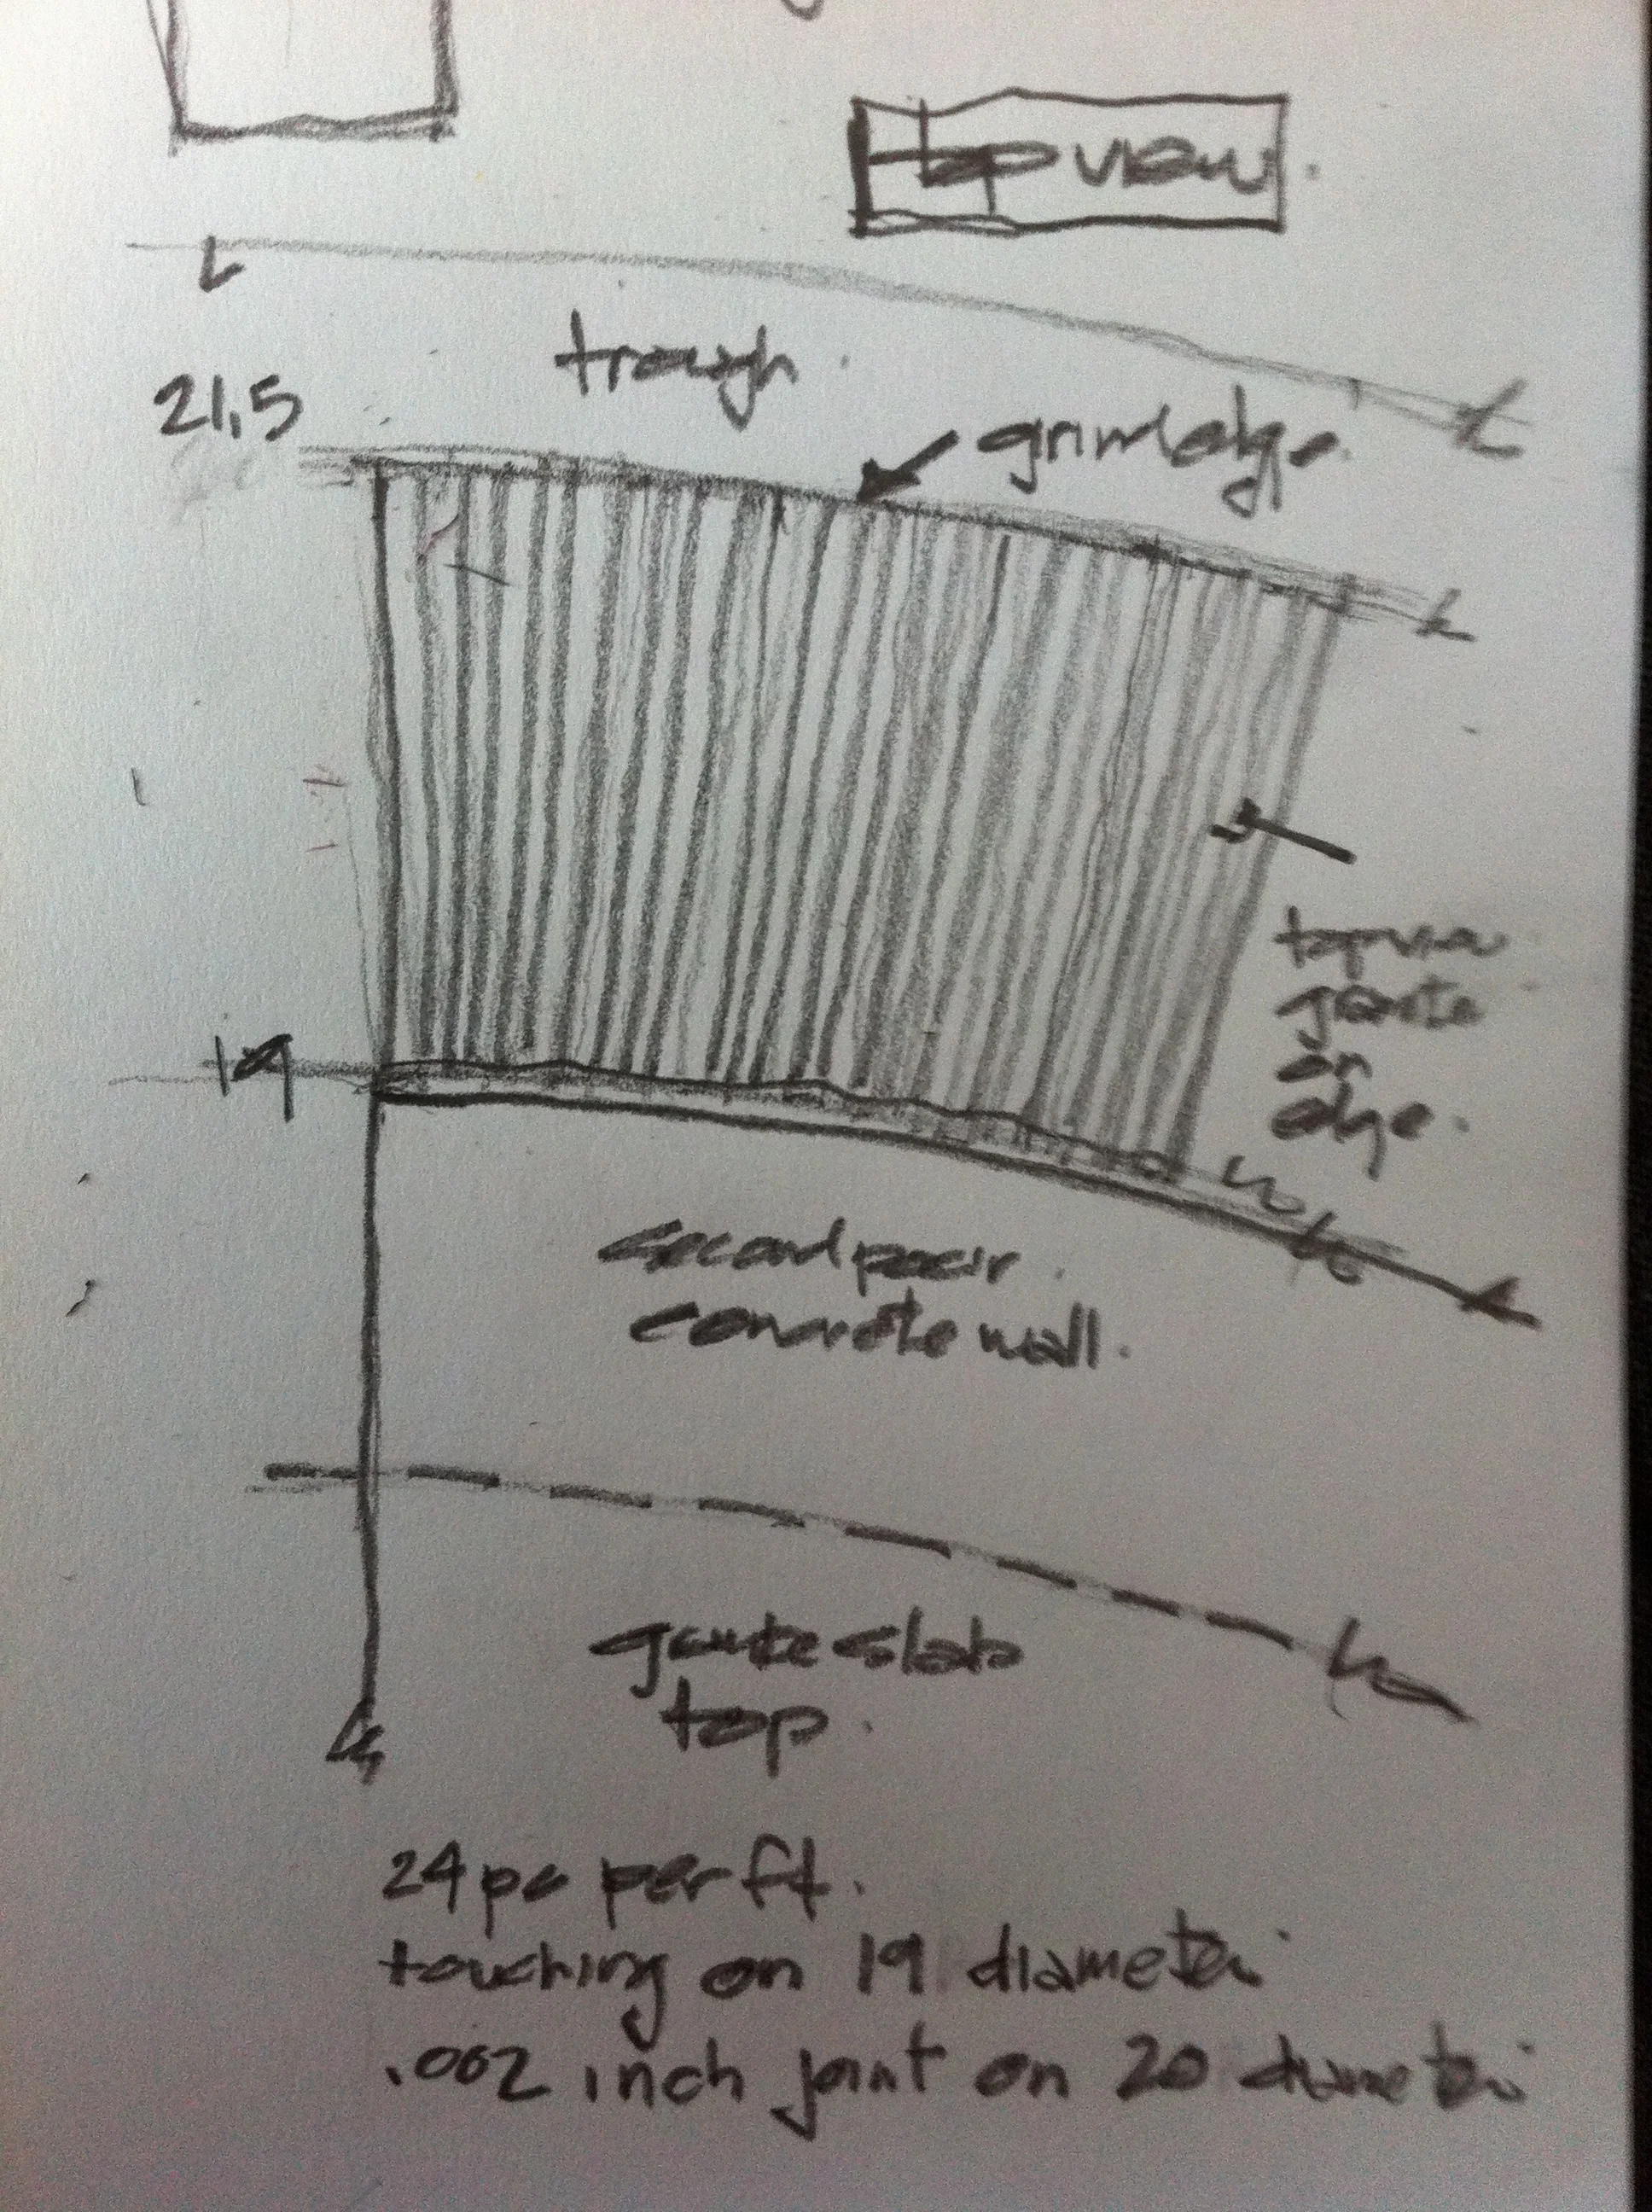 top view.
trough.
21.5
grind edge.
top view
granite
on
edge.
19
second pour
concrete wall.
granite slab
top.
24 pc per ft.
touching on 19 diameter
.002 inch joint on 20 diameter